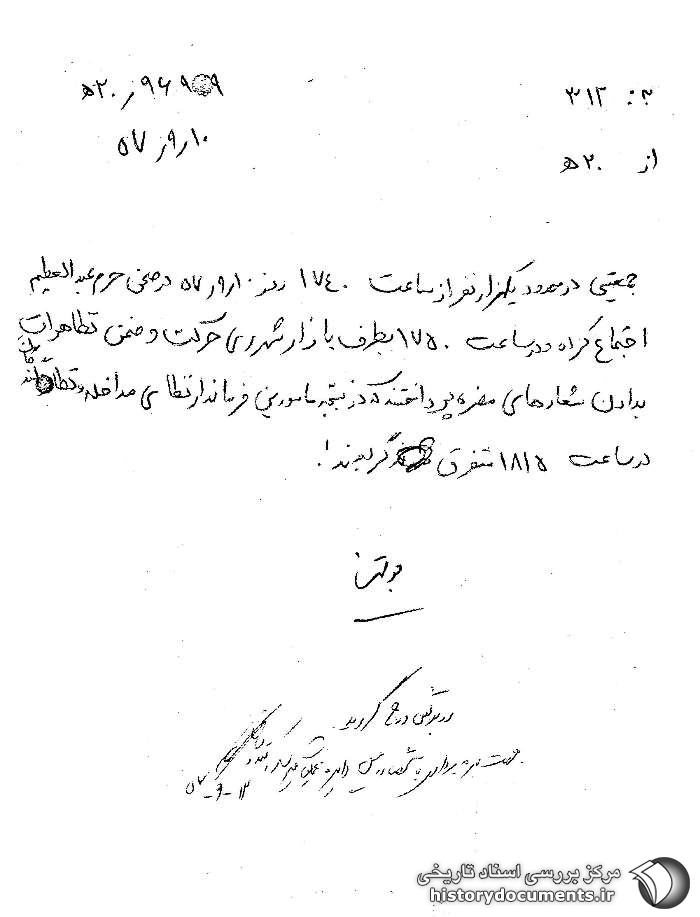 به: ۳۱۲
از ۲۰ ه‍
۹۶۹۰۹ر۲۰ه‍
۱۰ر۹ر۵۷
جمعیتی در حدود یکهزار نفر از ساعت ۱۷۴۰ روز ۱۰ر۹ر۵۷ در صحن حرم عبدالعظیم
اجتماع کرده و در ساعت ۱۷۵۰ بطرف بازار شهرری حرکت و ضمن تظاهرات
بدادن شعارهای مضره پرداختند که در نتیجه مامورین فرماندار نظامی مداخله و تظاهر
در ساعت ۱۸۱۵ متفرق گردیدند.
بولتن
در بولتن درج گردید
۱۳-۹-۵۷
مرکز بررسی اسناد تاریخی
historydocuments.ir